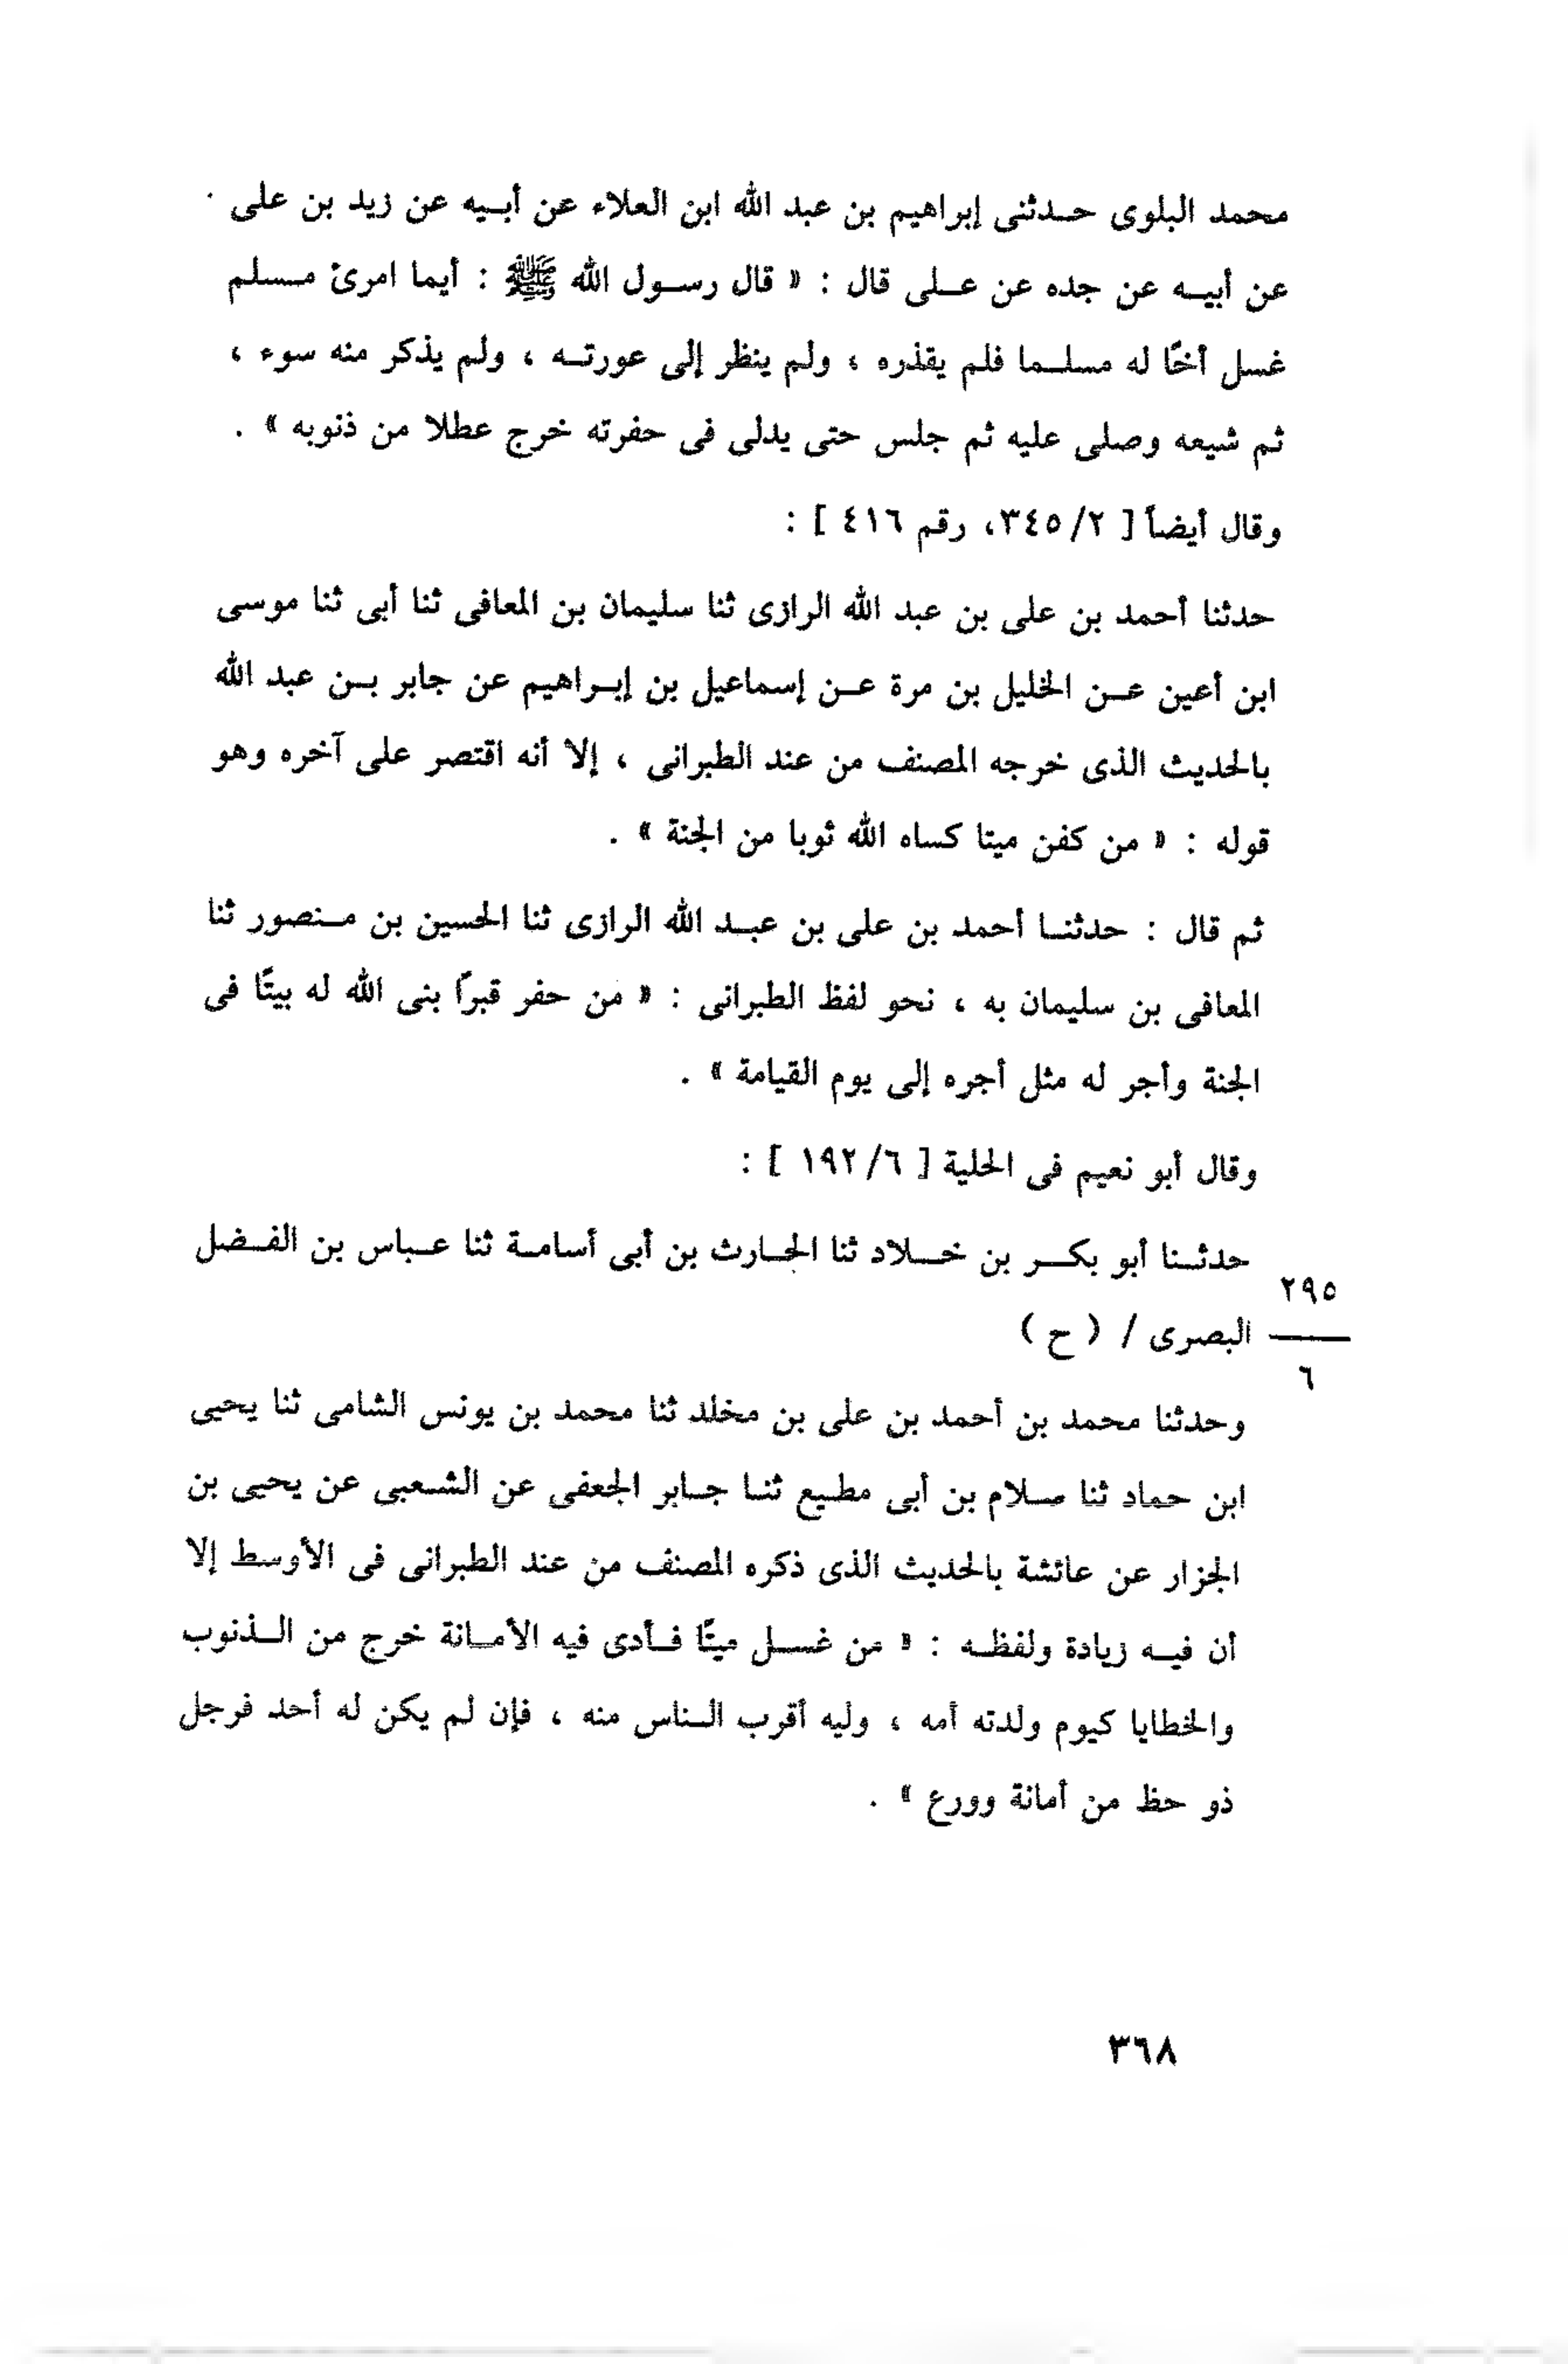 محمد البلوى حدثنى إبراهيم بن عبد الله ابن العلاء عن أبيه عن زيد بن على
عن أبيه عن جده عن على قال : « قال رسول الله ﷺ : أيما امرئ مسلم
غسل أخًا له مسلما فلم يقذره ، ولم ينظر إلى عورته ، ولم يذكر منه سوء ،
ثم شيعه وصلى عليه ثم جلس حتى يدلى فى حفرته خرج عطلا من ذنوبه » .
وقال أيضاً [ ٢/ ٣٤٥، رقم ٤١٦ ] :
حدثنا أحمد بن على بن عبد الله الرازى ثنا سليمان بن المعافى ثنا أبى ثنا موسى
ابن أعين عن الخليل بن مرة عن إسماعيل بن إبراهيم عن جابر بن عبد الله
بالحديث الذى خرجه المصنف من عند الطبرانى ، إلا أنه اقتصر على آخره وهو
قوله : « من كفن ميتا كساه الله ثوبا من الجنة » .
ثم قال : حدثنا أحمد بن على بن عبد الله الرازى ثنا الحسين بن منصور ثنا
المعافى بن سليمان به ، نحو لفظ الطبرانى : « من حفر قبرًا بنى الله له بيتًا فى
الجنة وأجر له مثل أجره إلى يوم القيامة » .
وقال أبو نعيم فى الحلية [ ٦/ ١٩٢ ] :
حدثنا أبو بكر بن خلاد ثنا الحارث بن أبى أسامة ثنا عباس بن الفضل
٢٩٥
البصرى / ( ح )
٦
وحدثنا محمد بن أحمد بن على بن مخلد ثنا محمد بن يونس الشامى ثنا يحيى
ابن حماد ثنا سلام بن أبى مطيع ثنا جابر الجعفى عن الشعبى عن يحيى بن
الجزار عن عائشة بالحديث الذى ذكره المصنف من عند الطبرانى فى الأوسط إلا
أن فيه زيادة ولفظه : « من غسل ميتًا فأدى فيه الأمانة خرج من الذنوب
والخطايا كيوم ولدته أمه ، وليه أقرب الناس منه ، فإن لم يكن له أحد فرجل
ذو حظ من أمانة وورع » .
٣٦٨